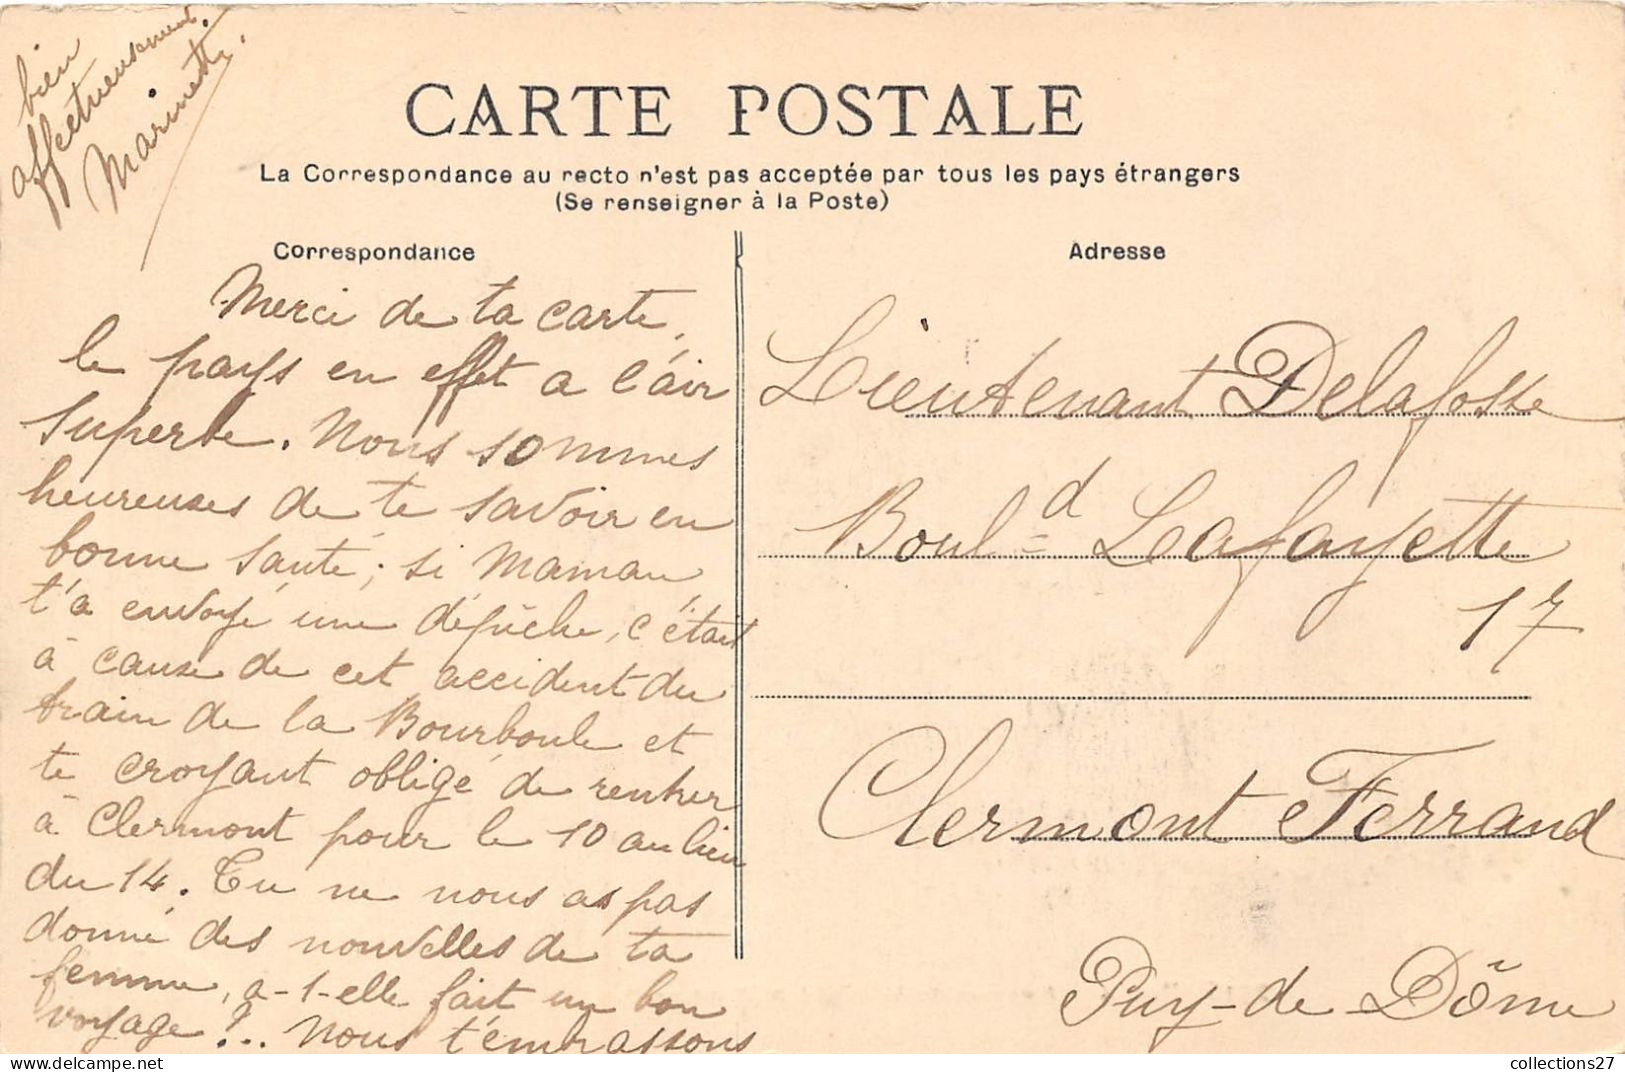 CARTE POSTALE
La Correspondance au recto n'est pas acceptée par tous les pays étrangers
(Se renseigner à la Poste)
Correspondance
Merci de ta carte,
le pays en effet a l'air
superbe. Nous sommes
heureuses de te savoir en
bonne santé; si Maman
t'a envoyé une dépêche, c'était
à cause de cet accident du
train de la Bourboule et
te croyant obligé de rentrer
à Clermont pour le 10 au lieu
du 14. Tu ne nous as pas
donné des nouvelles de ta
femme, a-t-elle fait un bon
voyage?.. Nous t'embrassons
bien
affectueusement.
Marinette.
Adresse
Lieutenant Delafosse
Boul-d Lafayette
17
Clermont Ferrand
Puy-de-Dôme
collections27